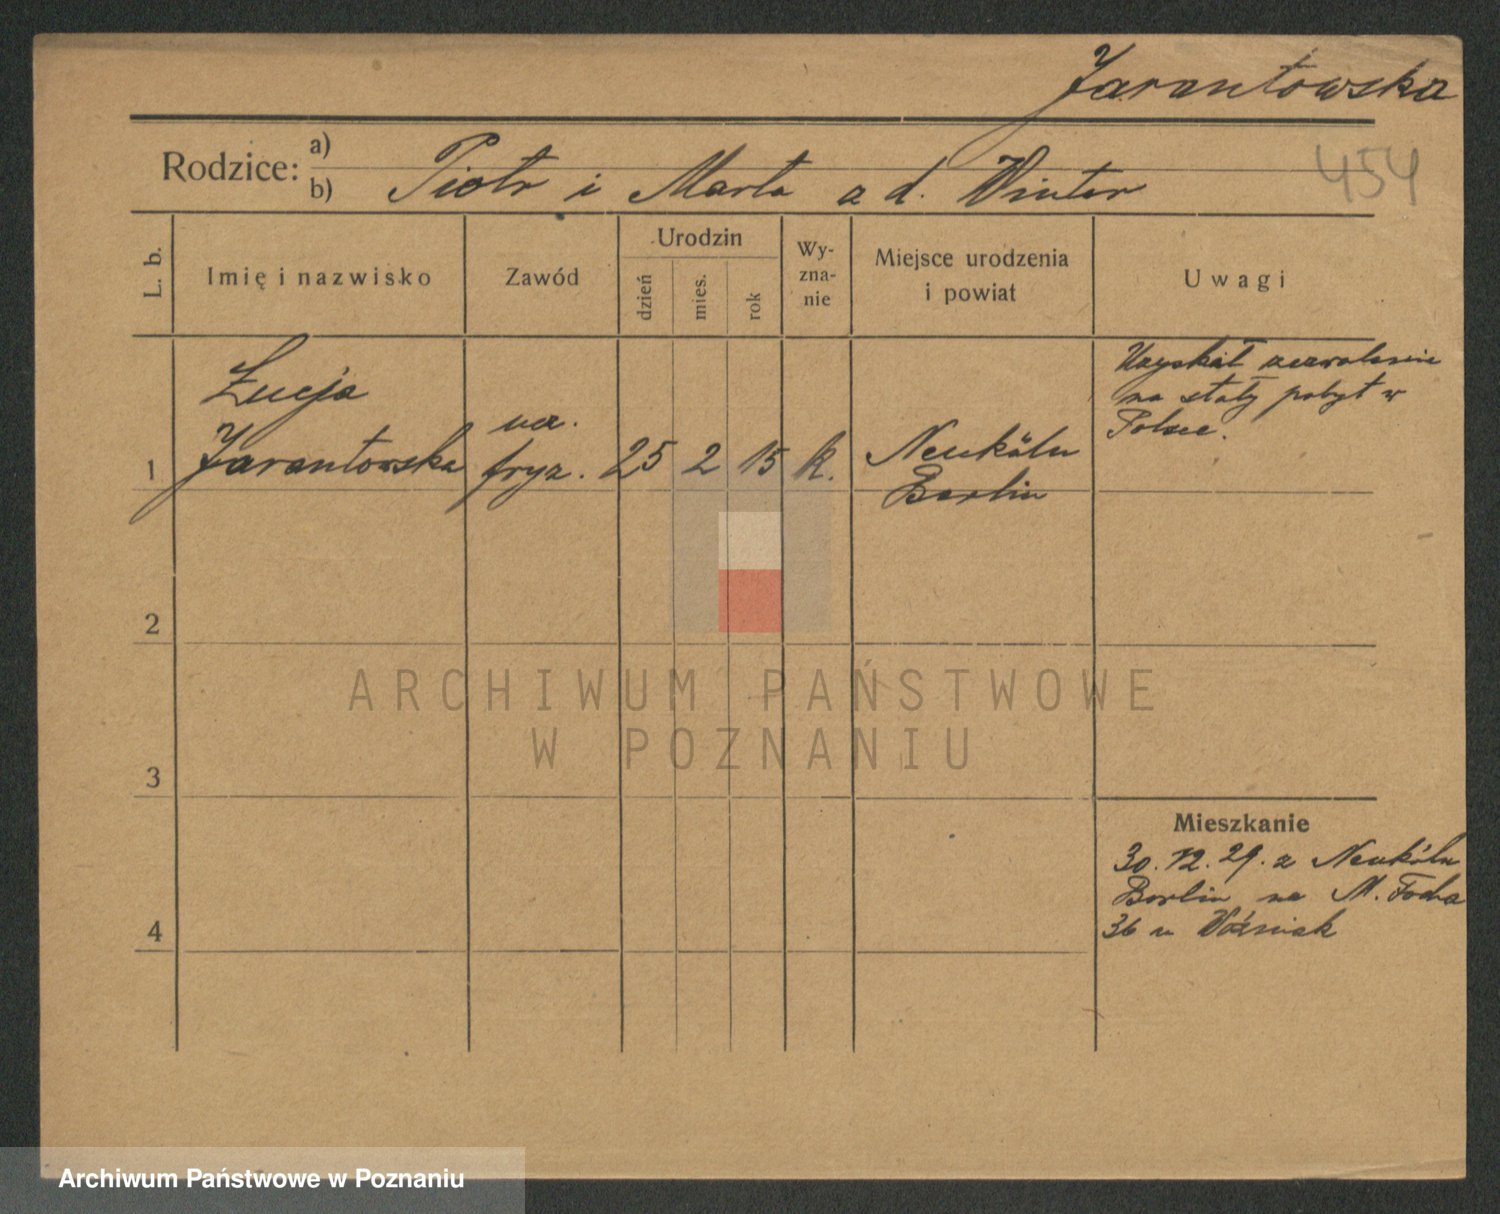 Jarantowska
Rodzice: a)
b) Piotr i Marta z d. Winter
454
L. b.
Imię i nazwisko
Zawód
Urodzin
dzień
mies.
rok
Wy-
zna-
nie
Miejsce urodzenia
i powiat
Uwagi
1
Łucja
Jarantowska
ucz.
fryz.
25 2 15 k.
Neukölln
Berlin
Uzyskał zezwolenie
na stały pobyt w
Polsce.
2
3
4
Mieszkanie
30.12.29. z Neukölln
Berlin na M. Focha
36 u Woźniak
ARCHIWUM PAŃSTWOWE
W POZNANIU
Archiwum Państwowe w Poznaniu